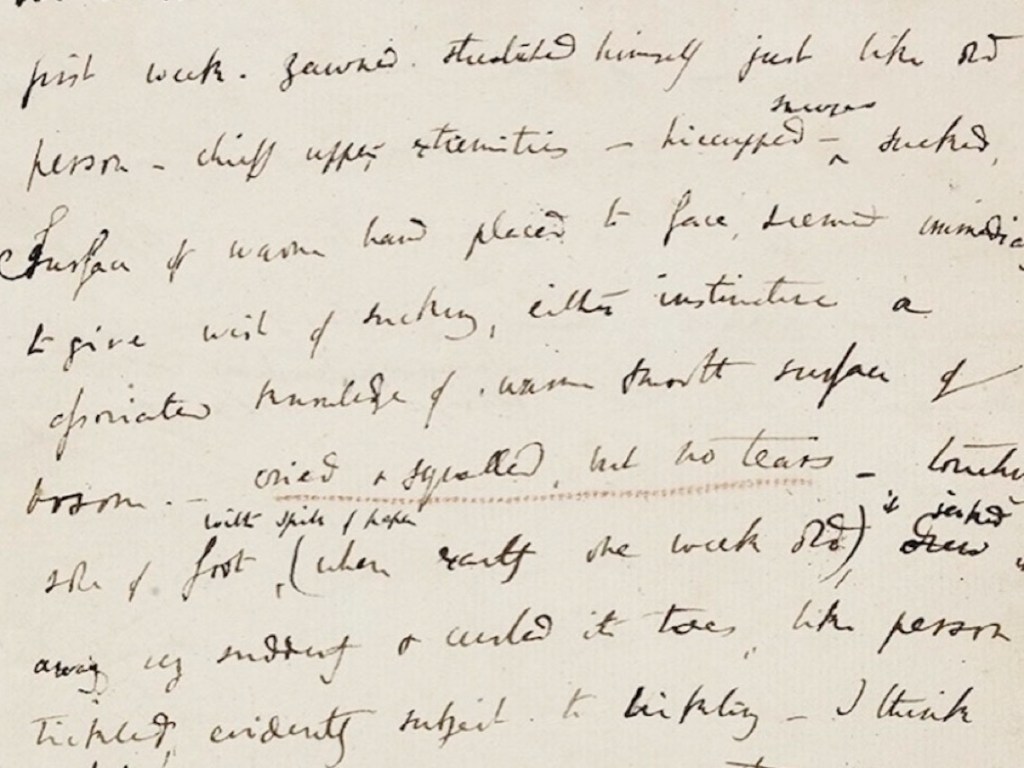 first week. yawned. streatched himself just like old
person — chiefly upper extremities — hiccupped —
sneezes
sucked,
Surface of warm hand placed to face, seemed immedia
to give wish of sucking, either instinctive or
associated knowledge of warm smooth surface of
bosom. — cried & squalled, but no tears — touch
with spill of paper
it jerked
sole of foot, (when exactly one week old),
away very suddenly & curled its toes, like person
tickled, evidently subject to tickling — I think